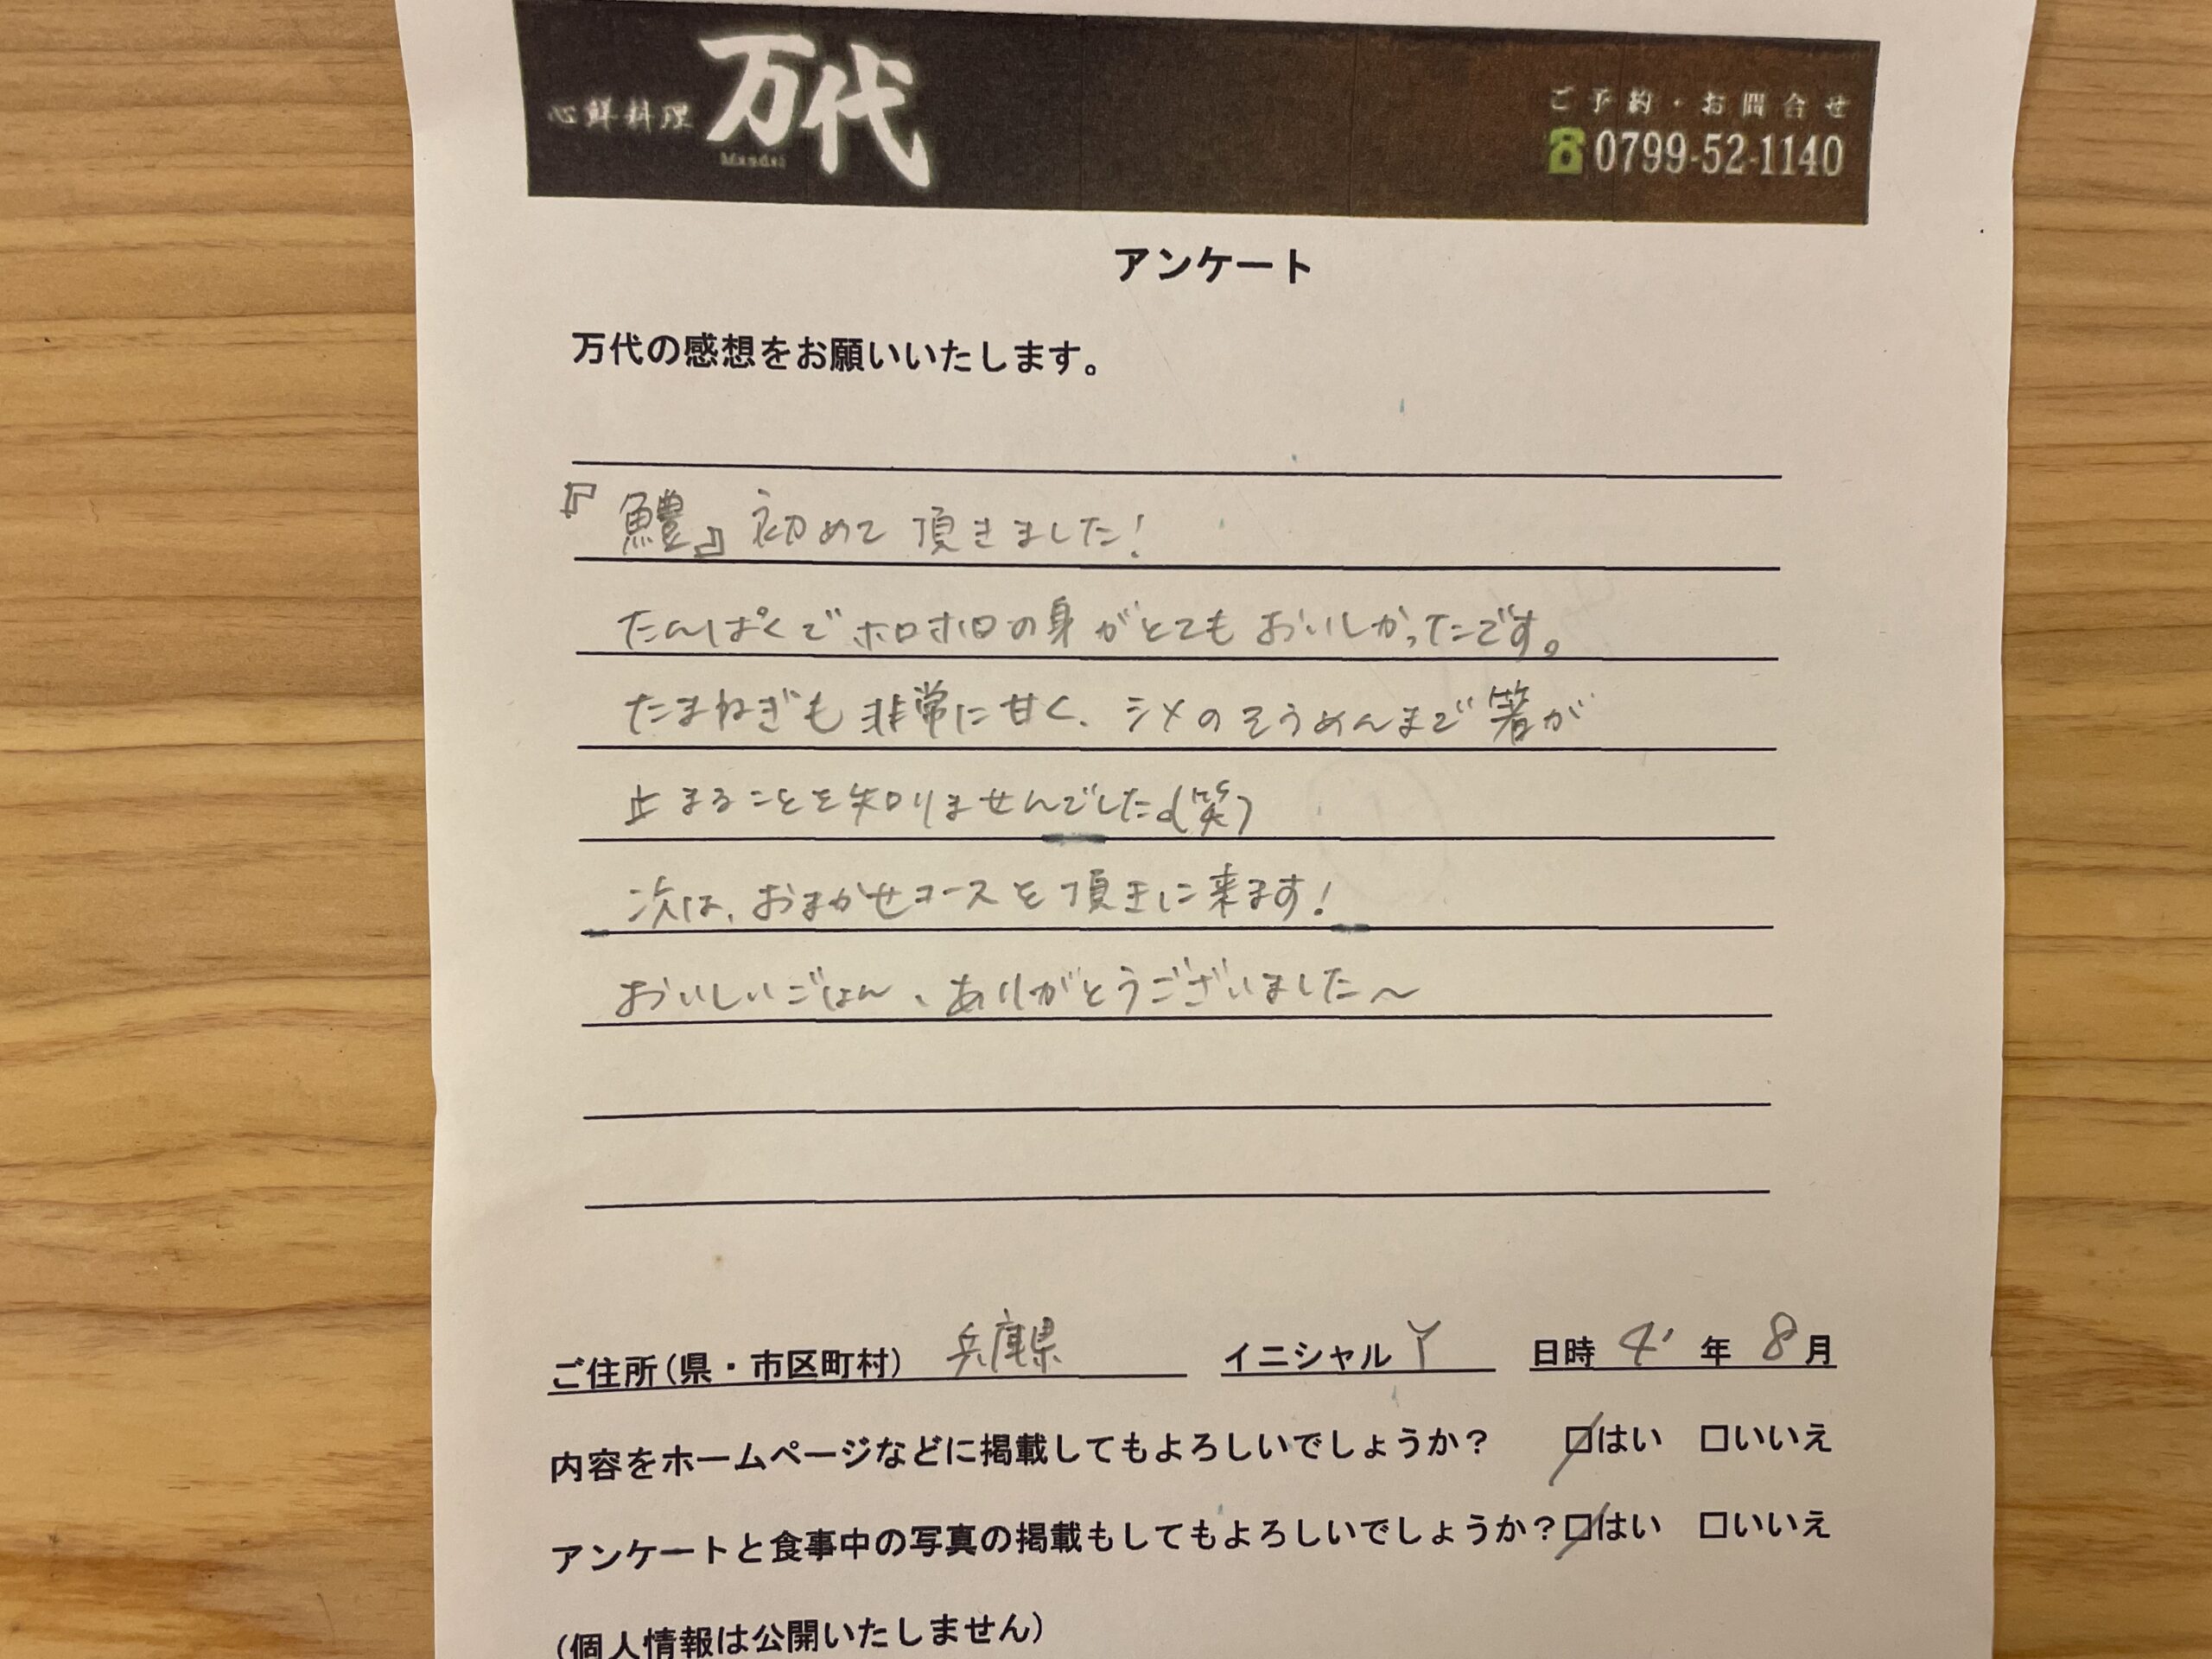 心鮮料理 万代
Mandai
ご予約・お問合せ
☎0799-52-1140
アンケート
万代の感想をお願いいたします。
『鱧』初めて頂きました!
たんぱくでホロホロの身がとてもおいしかったです。
たまねぎも非常に甘く、シメのそうめんまで箸が
止まることを知りませんでした。(笑)
次は、おまかせコースを頂きに来ます!
おいしいごはん、ありがとうございました〜
ご住所(県・市区町村) 兵庫県 イニシャル Y 日時 4' 年 8 月
内容をホームページなどに掲載してもよろしいでしょうか? ☑はい □いいえ
アンケートと食事中の写真の掲載もしてもよろしいでしょうか?☑はい □いいえ
(個人情報は公開いたしません)